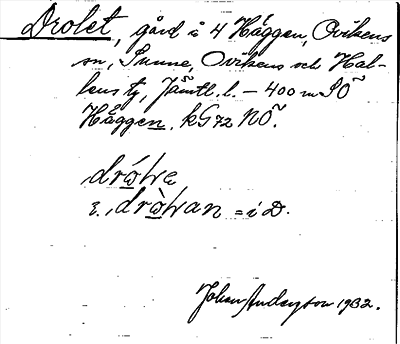 Drolet, gård i 4 Häggen, Ovikens
sn, Sunne, Ovikens och Hal-
lens tg, Jämtl. l. – 400 m SÖ
Häggen. KG72 NÖ.
dró̲we
i. drò̲wan = i D.
Johan Anderson 1932.